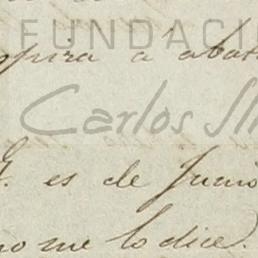 FUNDACI
spira á abat
Carlos Sli
G. es de Junio
no me lo dice.